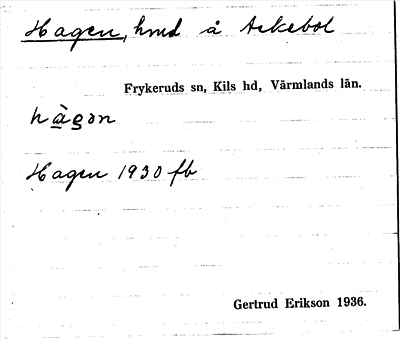 Hagen, hmd å Askebol
Frykeruds sn, Kils hd, Värmlands län.
hàgɔn
Hagen 1930 fb
Gertrud Erikson 1936.